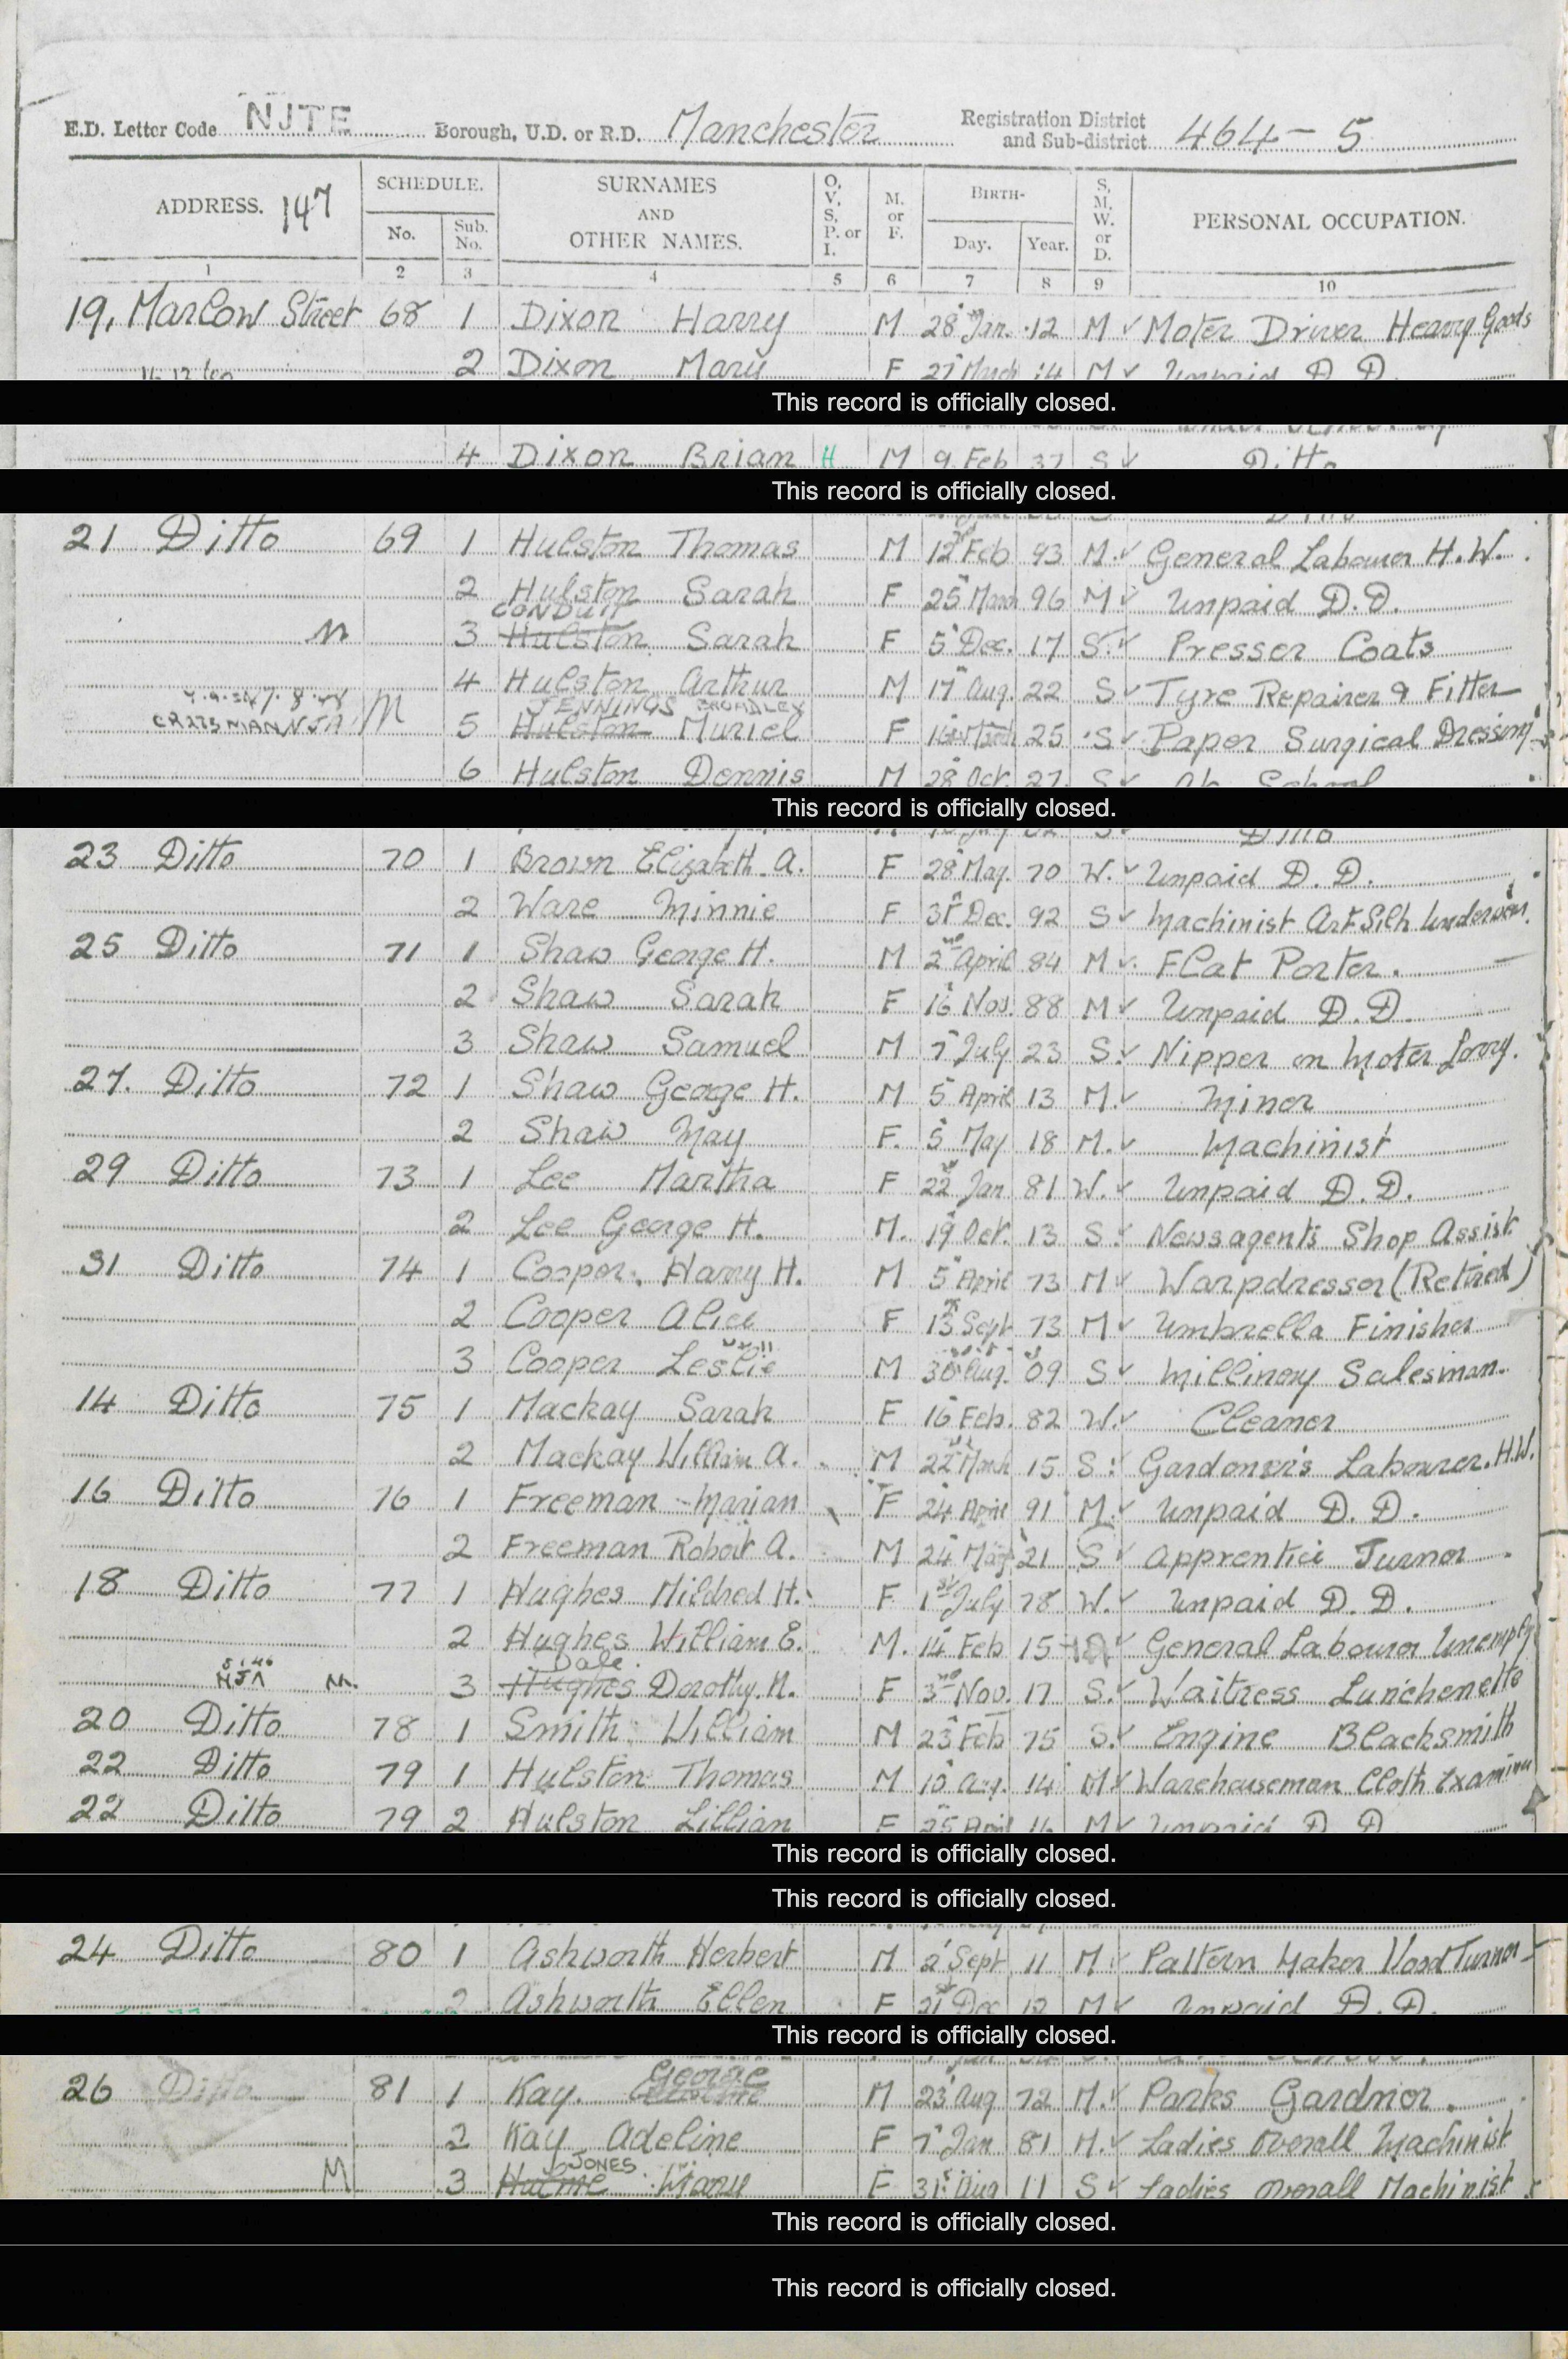 E.D. Letter Code NJTE Borough, U.D. or R.D. Manchester Registration District and Sub-district 464-5
ADDRESS. 147 SCHEDULE. No. Sub. No. SURNAMES AND OTHER NAMES. O, V, S, P. or I. M. or F. BIRTH- Day. Year. S, M. W. or D. PERSONAL OCCUPATION.
1 2 3 4 5 6 7 8 9 10
19, Marlow Street 68 1 Dixon Harry M 28th Jan. 12 M Moter Driver Heavy Goods
2 Dixon Mary F 27 March 14 M Unpaid D D.
This record is officially closed.
4 Dixon Brian H M 9 Feb 37 S Ditto
This record is officially closed.
21 Ditto 69 1 Hulston Thomas M 12th Feb 93 M General Labourer H.W.
2 Hulston Sarah F 25 March 96 M Unpaid D.D.
CONDUIT
M 3 Hulston Sarah F 5 Dec. 17 S. Presser Coats
4 Hulston Arthur M 17 Aug. 22 S Tyre Repairer & Fitter
JENNINGS BROADLEY
M 5 Hulston Muriel F 16 25 S Paper Surgical Dressing
6 Hulston Dennis M 28 Oct. 27 S At School
This record is officially closed.
Ditto
23 Ditto 70 1 Brown Elizabeth A. F 28 May. 70 W. Unpaid D.D.
2 Ware Minnie F 31st Dec. 92 S Machinist Art Silk Underwear
25 Ditto 71 1 Shaw George H. M 2nd April 84 M Flat Porter.
2 Shaw Sarah F 16 Nov. 88 M Unpaid D.D.
3 Shaw Samuel M 7 July 23 S. Nipper on Moter Lorry.
27. Ditto 72 1 Shaw George H. M 5 April 13 M. Minor
2 Shaw May F. 5 May 18 M. Machinist
29 Ditto 73 1 Lee Martha F 22nd Jan 81 W. Unpaid D.D.
2 Lee George H. M. 19 Oct. 13 S. Newsagents Shop Assist
31 Ditto 74 1 Cooper. Harry H. M 5 April 73 M Warpdresser (Retired)
2 Cooper Alice F 13th Sept 73 M Umbrella Finisher
3 Cooper Leslie M 30 Aug. 09 S Millinery Salesman.
14 Ditto 75 1 Mackay Sarah F 16 Feb. 82 W. Cleaner
2 Mackay William A. M 22nd March 15 S Gardener's Labourer. H.W.
16 Ditto 76 1 Freeman Marian F 24 April 91 M. Unpaid D.D.
2 Freeman Robert A. M 24 May 21 S Apprentice Turner
18 Ditto 77 1 Hughes Mildred H. F 1st July 78 W. Unpaid D.D.
2 Hughes William E. M. 14 Feb 15 General Labourer Unempl
Dale
5.1.46 NJA M. 3 Hughes Dorothy. M. F 3rd Nov. 17 S. Waitress Lunchenette
20 Ditto 78 1 Smith William M 23 Feb 75 S. Engine Blacksmith
22 Ditto 79 1 Hulston Thomas M 10 Aug. 14 M Warehouseman Cloth Examiner
22 Ditto 79 2 Hulston Lillian F 25 April 16 M Unpaid D D
This record is officially closed.
This record is officially closed.
24 Ditto 80 1 Ashworth Herbert M 2 Sept 11 M Pattern Maker Wood Turner
2 Ashworth Ellen F 21st Dec 12 M Unpaid D.D.
This record is officially closed.
George
26 Ditto 81 1 Kay. M 23 Aug 72 M. Parks Gardner.
2 Kay Adeline F 7 Jan 81 M. Ladies Overall Machinist
JONES
M 3 Hulme Mary F 31st Aug 11 S Ladies Overall Machinist
This record is officially closed.
This record is officially closed.